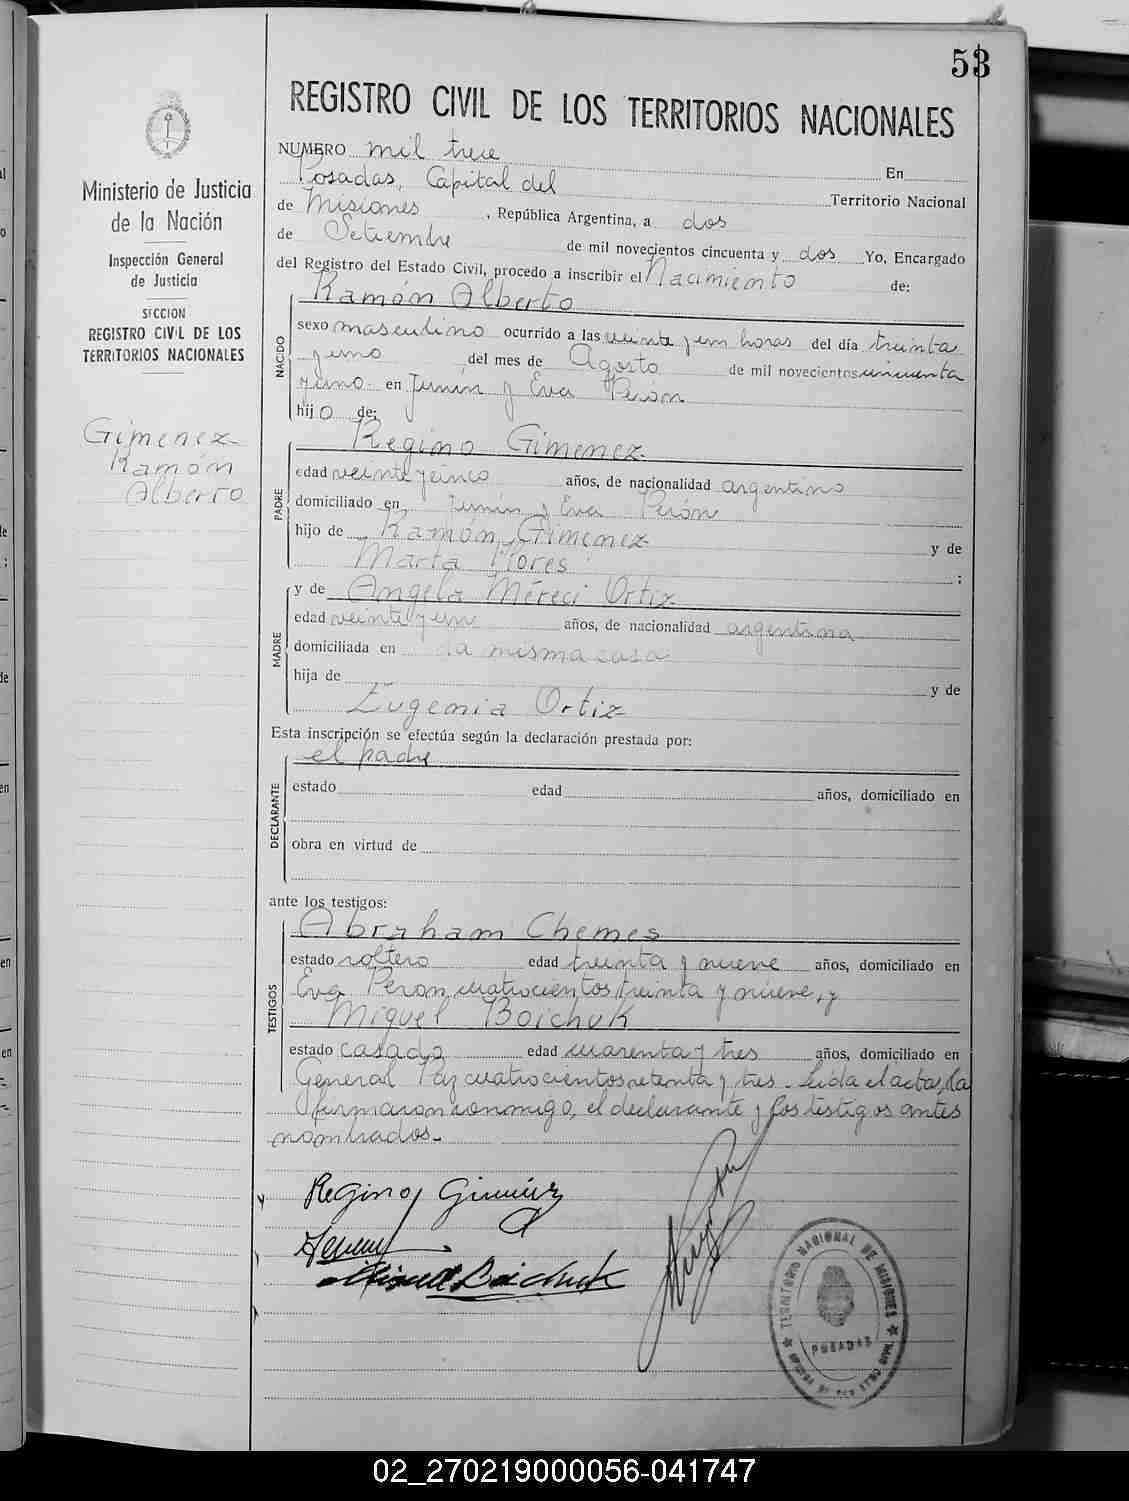 53
REGISTRO CIVIL DE LOS TERRITORIOS NACIONALES
NUMERO mil trece En
Posadas, Capital del Territorio Nacional
de Misiones, República Argentina, a dos
de Setiembre de mil novecientos cincuenta y dos Yo, Encargado
del Registro del Estado Civil, procedo a inscribir el Nacimiento de:
Ministerio de Justicia
de la Nación
Inspección General
de Justicia
SECCION
REGISTRO CIVIL DE LOS
TERRITORIOS NACIONALES
Gimenez
Ramón
Alberto
NACIDO
Ramón Alberto
sexo masculino ocurrido a las veinte y un horas del día treinta
y uno del mes de Agosto de mil novecientos cincuenta
y uno en Junín y Eva Perón
hijo de:
PADRE
Regino Gimenez
edad veinte y cinco años, de nacionalidad argentino
domiciliado en Junín y Eva Perón
hijo de Ramón Gimenez y de
Marta Flores ;
MADRE
y de Angela Méreci Ortiz
edad veinte y un años, de nacionalidad argentina
domiciliada en la misma casa
hija de y de
Eugenia Ortiz
Esta inscripción se efectúa según la declaración prestada por:
DECLARANTE
el padre
estado edad años, domiciliado en
obra en virtud de
ante los testigos:
TESTIGOS
Abraham Chemes
estado soltero edad treinta y nueve años, domiciliado en
Eva Peron cuatrocientos treinta y nueve, y
Miguel Boichuk
estado casado edad cuarenta y tres años, domiciliado en
General Paz cuatrocientos setenta y tres - Leida el acta, la
firmaron conmigo, el declarante y los testigos antes
nombrados.-
Regino Gimenez
Miguel Boichuk
TERRITORIO NACIONAL DE MISIONES
POSADAS
02_270219000056-041747